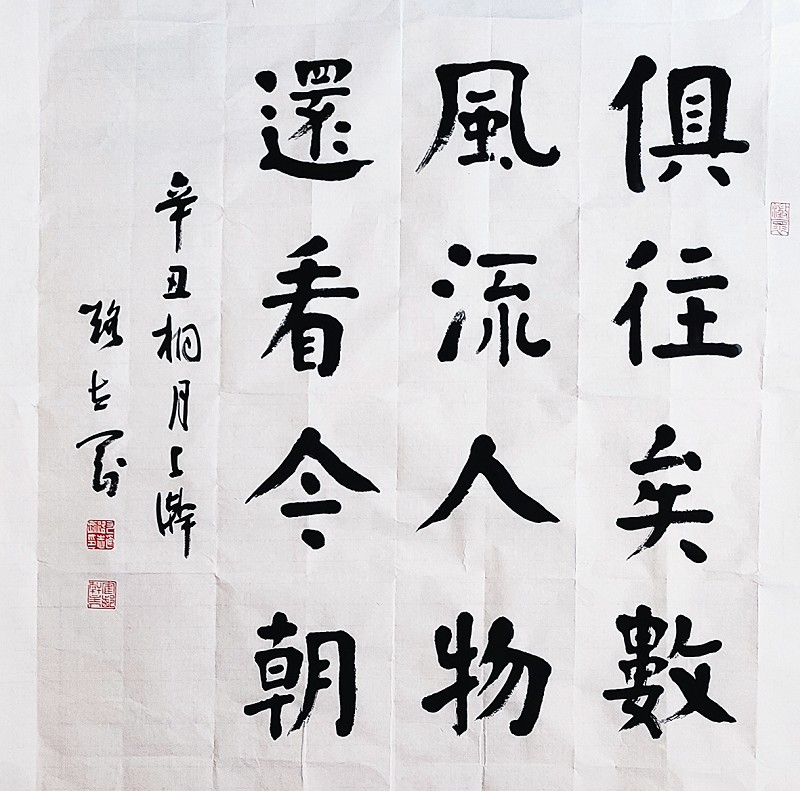 俱往矣數
風流人物
還看今朝
辛丑桐月上澣